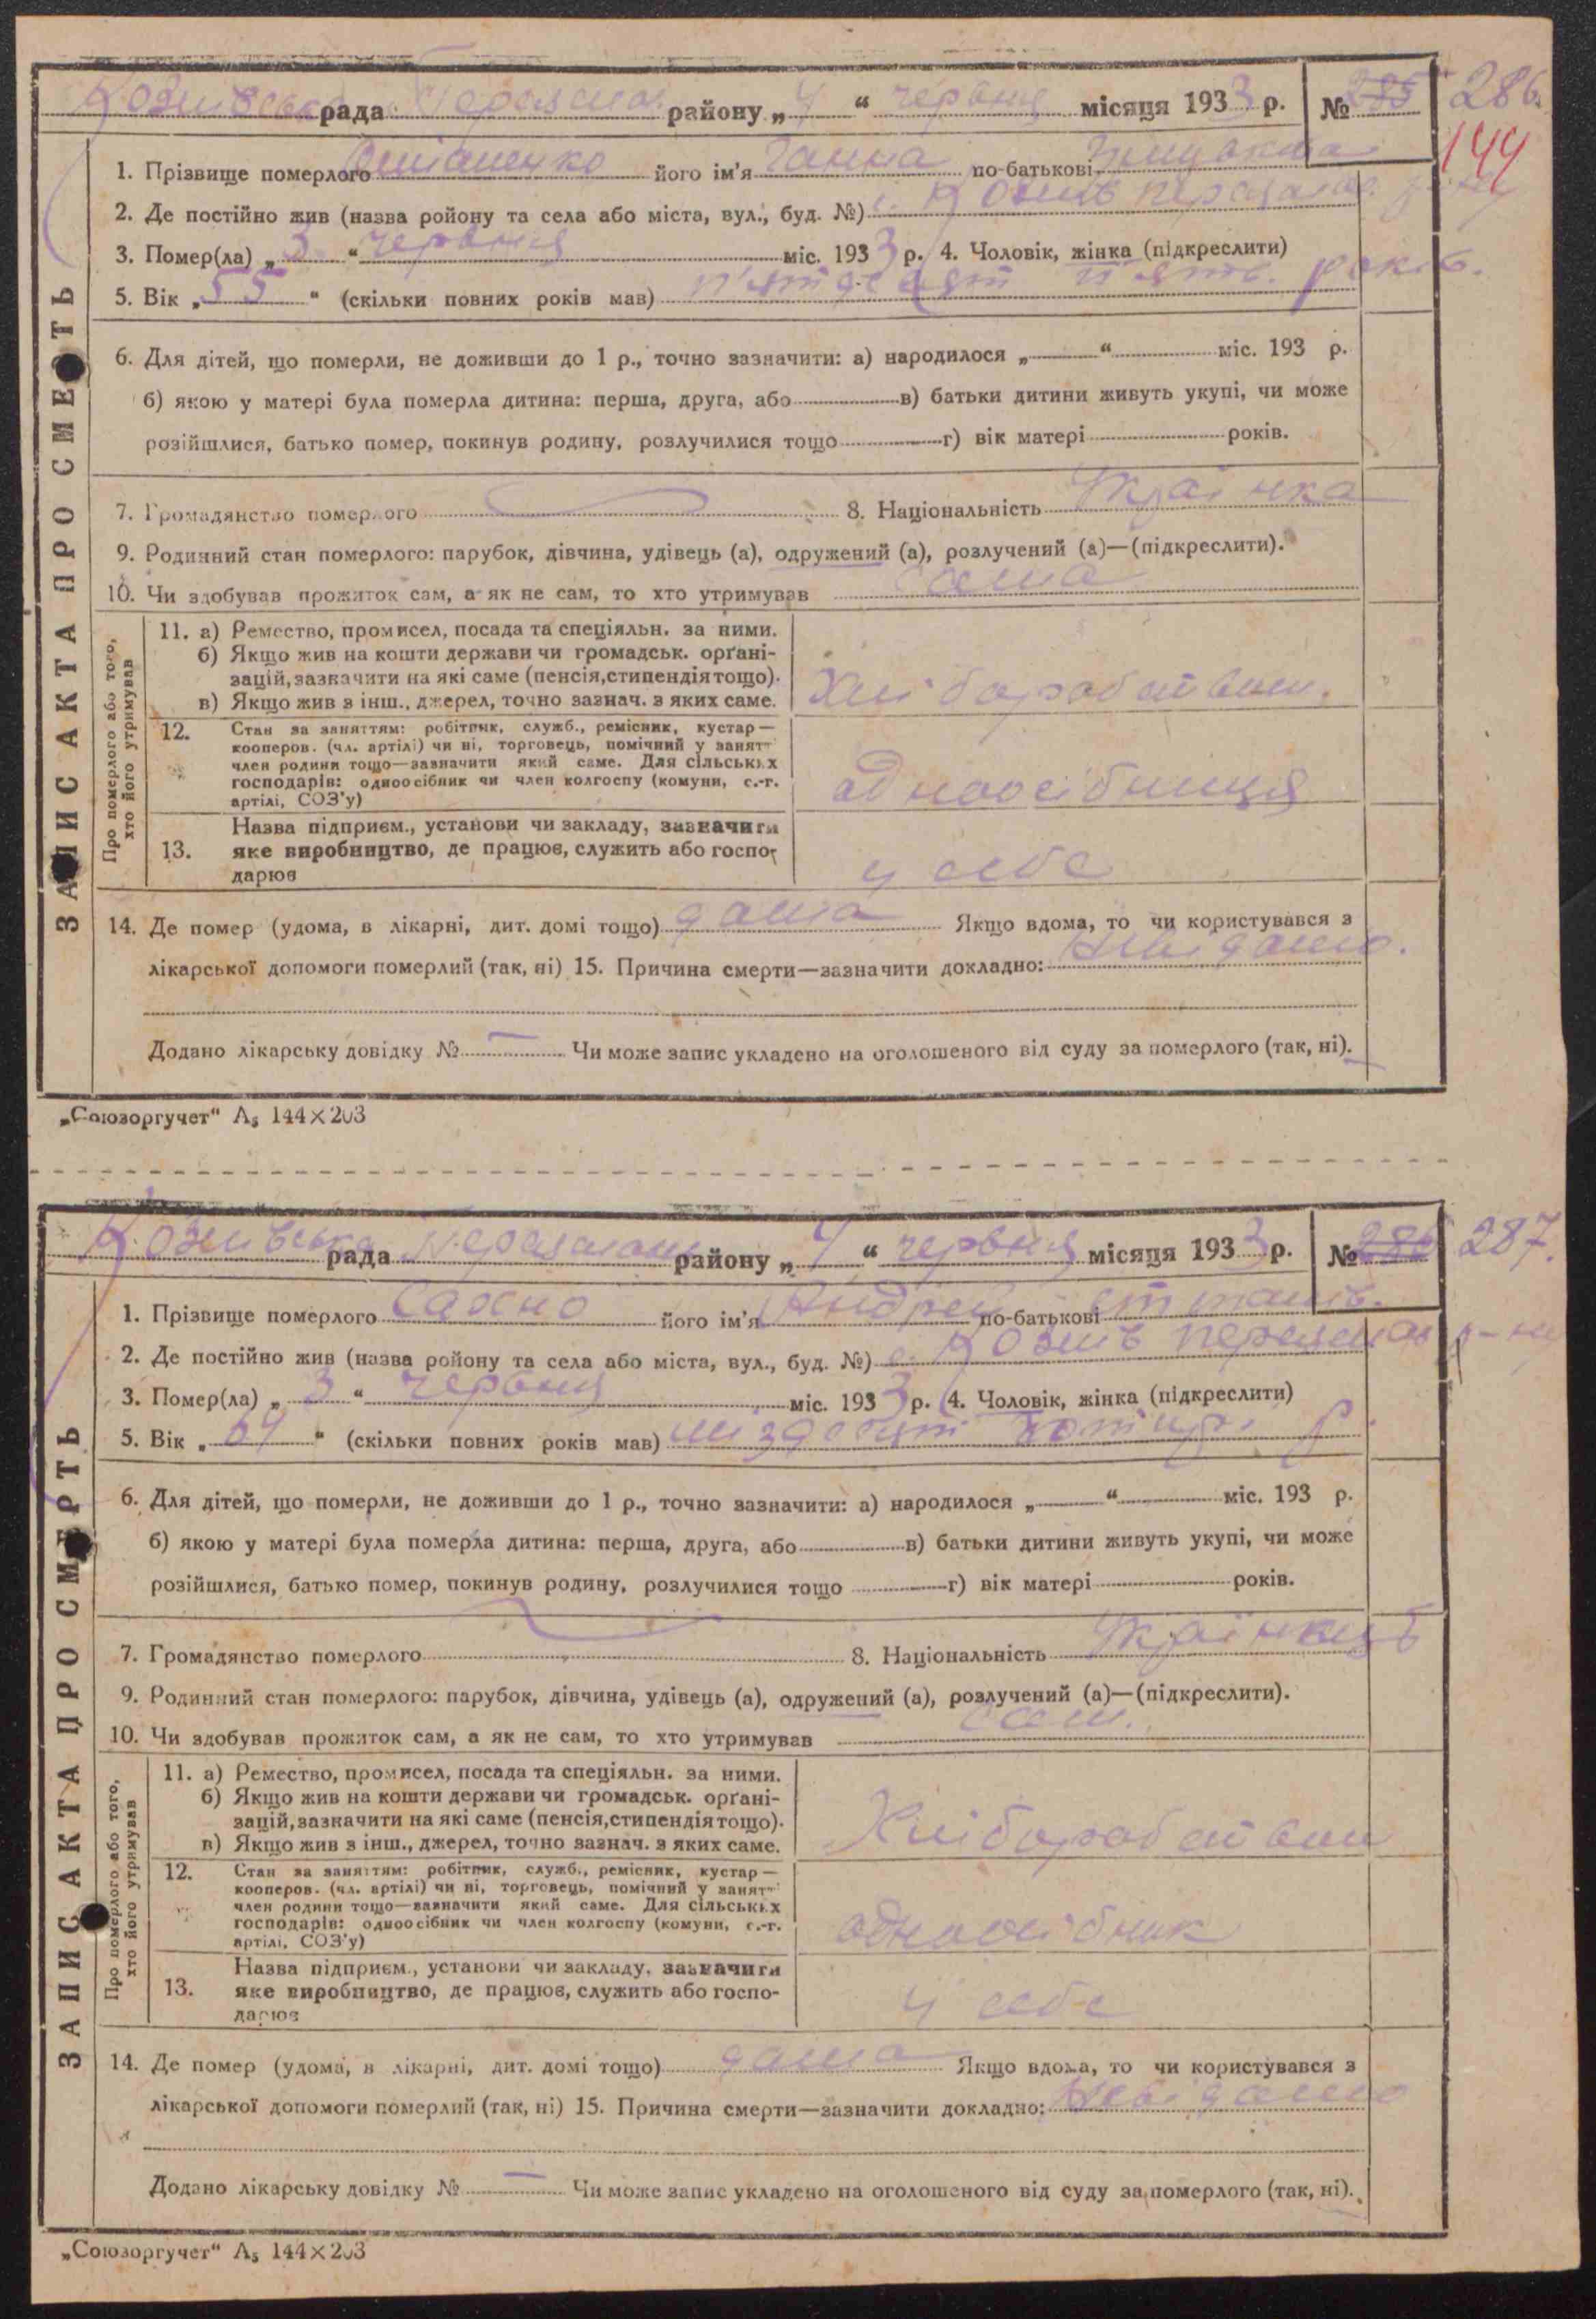 Козлівська рада Переяслав. району „4“ червня місяця 1933 р. № 285 286.
144
1. Прізвище померлого його ім'я Ганна по-батькові
2. Де постійно жив (назва ройону та села або міста, вул., буд. №) с. Козлів переяслав. р-ну
3. Помер(ла) „3“ червня міс. 1933 р. 4. Чоловік, жінка (підкреслити)
5. Вік „55“ (скільки повних років мав) п'ятдесят п'ять. років.
6. Для дітей, що померли, не доживши до 1 р., точно зазначити: а) народилося „ “ міс. 193 р.
б) якою у матері була померла дитина: перша, друга, або в) батьки дитини живуть укупі, чи може
розійшлися, батько помер, покинув родину, розлучилися тощо г) вік матері років.
7. Громадянство померлого 8. Національність Українка
9. Родинний стан померлого: парубок, дівчина, удівець (а), одружений (а), розлучений (а)—(підкреслити).
10. Чи здобував прожиток сам, а як не сам, то хто утримував сама
ЗАПИС АКТА ПРО СМЕРТЬ
Про померлого або того, хто його утримував
11. а) Ремество, промисел, посада та спеціяльн. за ними.
б) Якщо жив на кошти держави чи громадськ. орґані-
зацій, зазначити на які саме (пенсія, стипендія тощо).
в) Якщо жив з інш., джерел, точно зазнач. з яких саме.
Хліборобством.
12. Стан за заняттям: робітник, служб., ремісник, кустар—
кооперов. (чл. артілі) чи ні, торговець, помічний у занят
член родини тощо—зазначити який саме. Для сільських
господарів: одноосібник чи член колгоспу (комуни, с.-г.
артілі, СОЗ'у)
одноосібниця
13. Назва підприєм., установи чи закладу, зазначити
яке виробництво, де працює, служить або госпо-
дарює
у себе
14. Де помер (удома, в лікарні, дит. домі тощо) дома Якщо вдома, то чи користувався з
лікарської допомоги померлий (так, ні) 15. Причина смерти—зазначити докладно: Невідомо.
Додано лікарську довідку № — Чи може запис укладено на оголошеного від суду за померлого (так, ні).
„Союзоргучет“ А₅ 144×203
Козлівська рада Переяслав району „4“ червня місяця 1933 р. № 286 287.
1. Прізвище померлого Сахно його ім'я Андрей по-батькові
2. Де постійно жив (назва ройону та села або міста, вул., буд. №) с. Козлів переяслав р-ну
3. Помер(ла) „3“ червня міс. 1933 р. 4. Чоловік, жінка (підкреслити)
5. Вік „64“ (скільки повних років мав) шіздесят чотирі р.
6. Для дітей, що померли, не доживши до 1 р., точно зазначити: а) народилося „ “ міс. 193 р.
б) якою у матері була померла дитина: перша, друга, або в) батьки дитини живуть укупі, чи може
розійшлися, батько помер, покинув родину, розлучилися тощо г) вік матері років.
7. Громадянство померлого 8. Національність Українець
9. Родинний стан померлого: парубок, дівчина, удівець (а), одружений (а), розлучений (а)—(підкреслити).
10. Чи здобував прожиток сам, а як не сам, то хто утримував сам.
ЗАПИС АКТА ПРО СМЕРТЬ
Про померлого або того, хто його утримував
11. а) Ремество, промисел, посада та спеціяльн. за ними.
б) Якщо жив на кошти держави чи громадськ. орґані-
зацій, зазначити на які саме (пенсія, стипендія тощо).
в) Якщо жив з інш., джерел, точно зазнач. з яких саме.
Хліборобством
12. Стан за заняттям: робітник, служб., ремісник, кустар—
кооперов. (чл. артілі) чи ні, торговець, помічний у занят
член родини тощо—зазначити який саме. Для сільських
господарів: одноосібник чи член колгоспу (комуни, с.-г.
артілі, СОЗ'у)
одноосібник
13. Назва підприєм., установи чи закладу, зазначити
яке виробництво, де працює, служить або госпо-
дарює
у себе
14. Де помер (удома, в лікарні, дит. домі тощо) дома Якщо вдома, то чи користувався з
лікарської допомоги померлий (так, ні) 15. Причина смерти—зазначити докладно: Невідомо
Додано лікарську довідку № — Чи може запис укладено на оголошеного від суду за померлого (так, ні).
„Союзоргучет“ А₅ 144×203